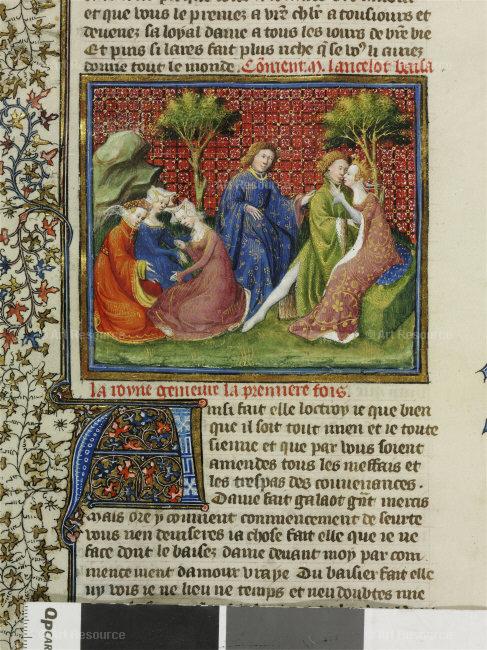 et que vous le preniez a vr̃e chl̃r a tousiours et
devenez sa loyal dame a tous les iours de vr̃e vie
Et puis si lares fait plus riche q̃ se vo9 li aviez
donne tout le monde. Cõment .M. lancelot baisa
la royne genieure la premiere fois.
Ainsi fait elle loctroy ie que bien
que il soit tout mien et ie toute
sienne et que par vous soient
amendes tous les meffais et
les trespas des couuenances.
Dame fait galaot grñt mercis
mais ore y convient commencement de seurte
vous nen deuiseres ia chose fait elle que ie ne
face dont le baisez dame devant moy par com
mencement damour vraye Du baisier fait elle
ny vois ie ne lieu ne temps et nen doubtes mie
Art Resource